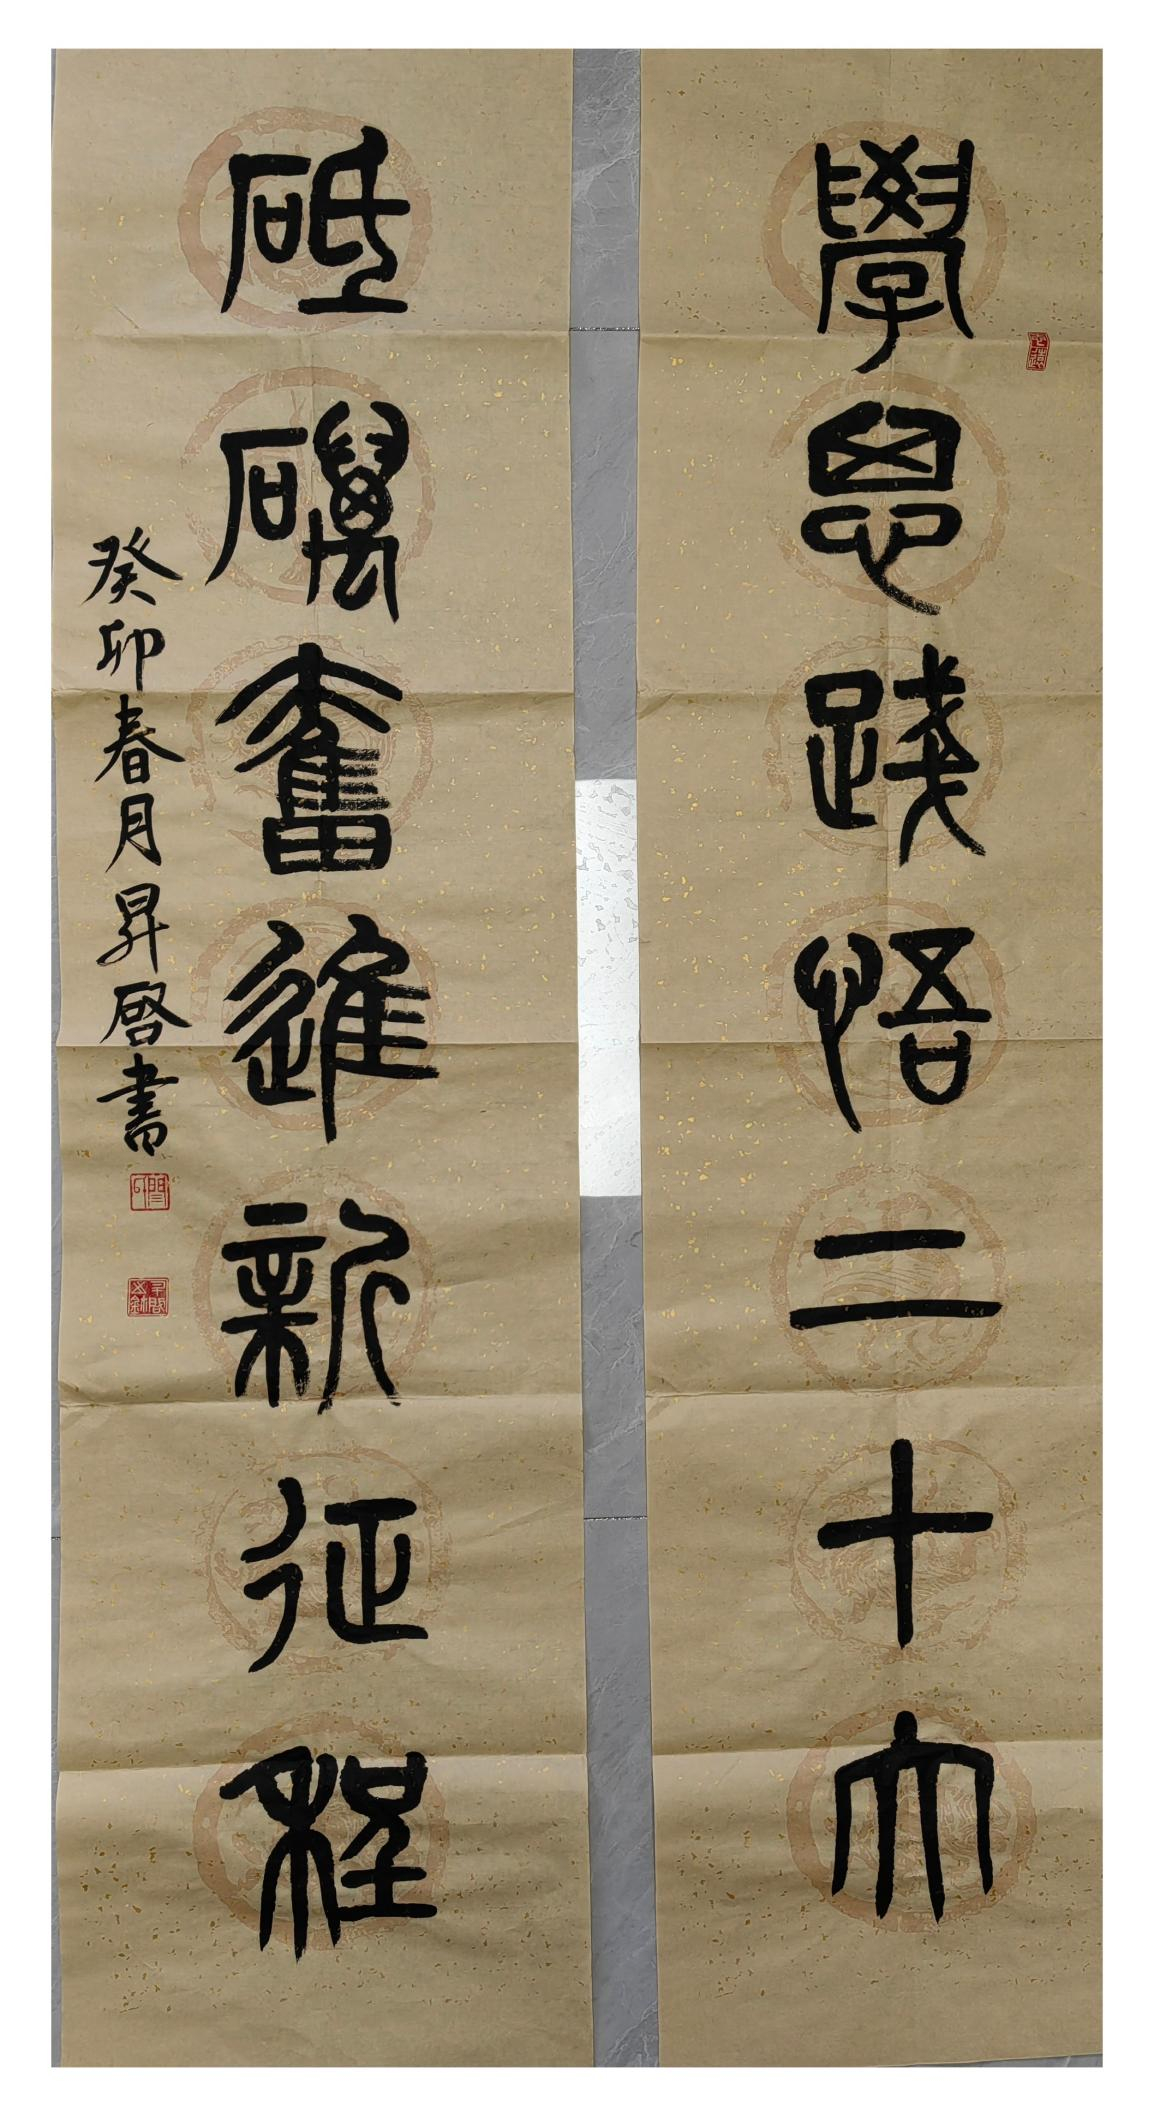 學思踐悟二十大
砥礪奮進新征程
癸卯春月昇啓書